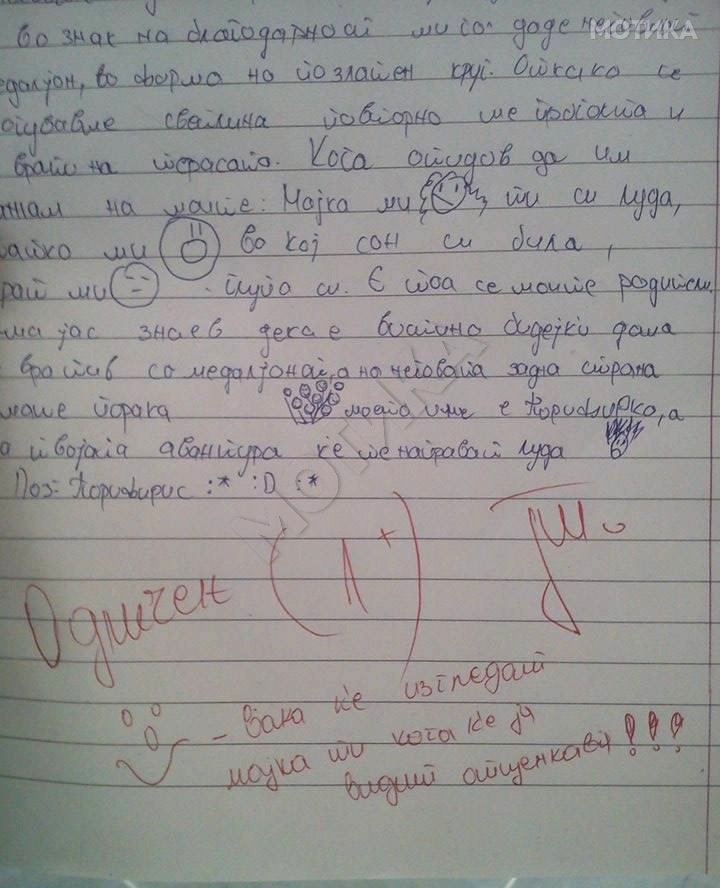 МОТИКА
во знак на благодарност ми го даде неговиот
медалјон, во форма на позлатен круг. Откако се
свалина повторно ме проголта и
врати на терасата. Кога отидов да им
кажам на моите: Мајка ми, ти си луда,
татко ми во кој сон си била,
брат ми глупа си. Е тоа се моите родители.
ма јас знаев дека е вистина бидејќи дома
се вратив со медалјонот, а на неговата задна страна
имаше порака моето име е Порфирко, а
а твојата авантура ќе те направи луда
Поз- Порфирис :* :D :*
МОТИКА
Одличен (1+)
- Вака ќе изгледаш
мајка ти кога ќе ја
видит оценкава!!!